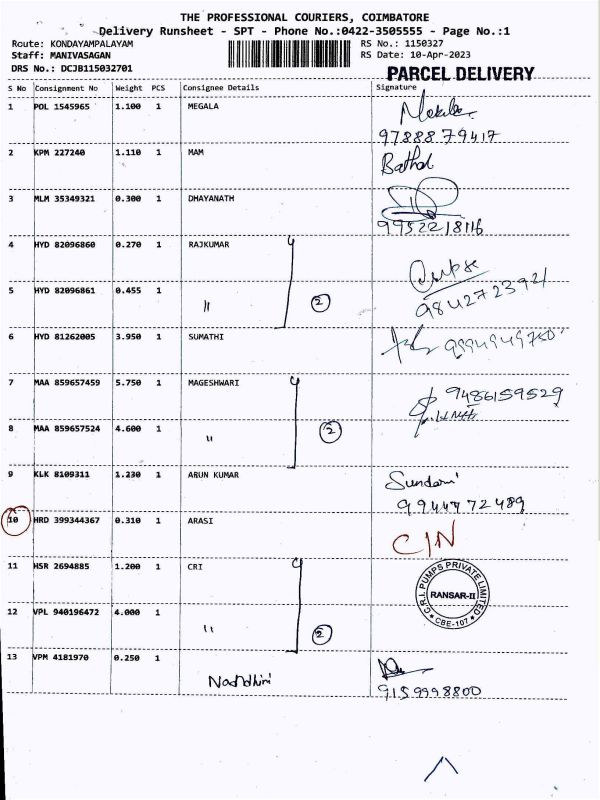 THE PROFESSIONAL COURIERS, COIMBATORE
Delivery Runsheet - SPT - Phone No.:0422-3505555 - Page No.:1
Route: KONDAYAMPALAYAM RS No.: 1150327
Staff: MANIVASAGAN RS Date: 10-Apr-2023
DRS No.: DCJB115032701 PARCEL DELIVERY
S No Consignment No Weight PCS Consignee Details Signature
1 POL 1545965 1.100 1 MEGALA
97888 79417
2 KPM 227240 1.110 1 MAM
3 MLM 35349321 0.300 1 DHAYANATH
9952218116
4 HYD 82096860 0.270 1 RAJKUMAR
9842723921
5 HYD 82096861 0.455 1 " 2
6 HYD 81262005 3.950 1 SUMATHI
7 MAA 859657459 5.750 1 MAGESHWARI 9486159529
8 MAA 859657524 4.600 1 " 2
9 KLK 8109311 1.230 1 ARUN KUMAR Sundari
9944772489
10 HRD 399344367 0.310 1 ARASI C/N
11 HSR 2694885 1.200 1 CRI
C.R.I. PUMPS PRIVATE LIMITED
RANSAR-II
CBE-107
12 VPL 940196472 4.000 1 " 2
13 VPM 4181970 0.250 1
Nandhini
9159998800